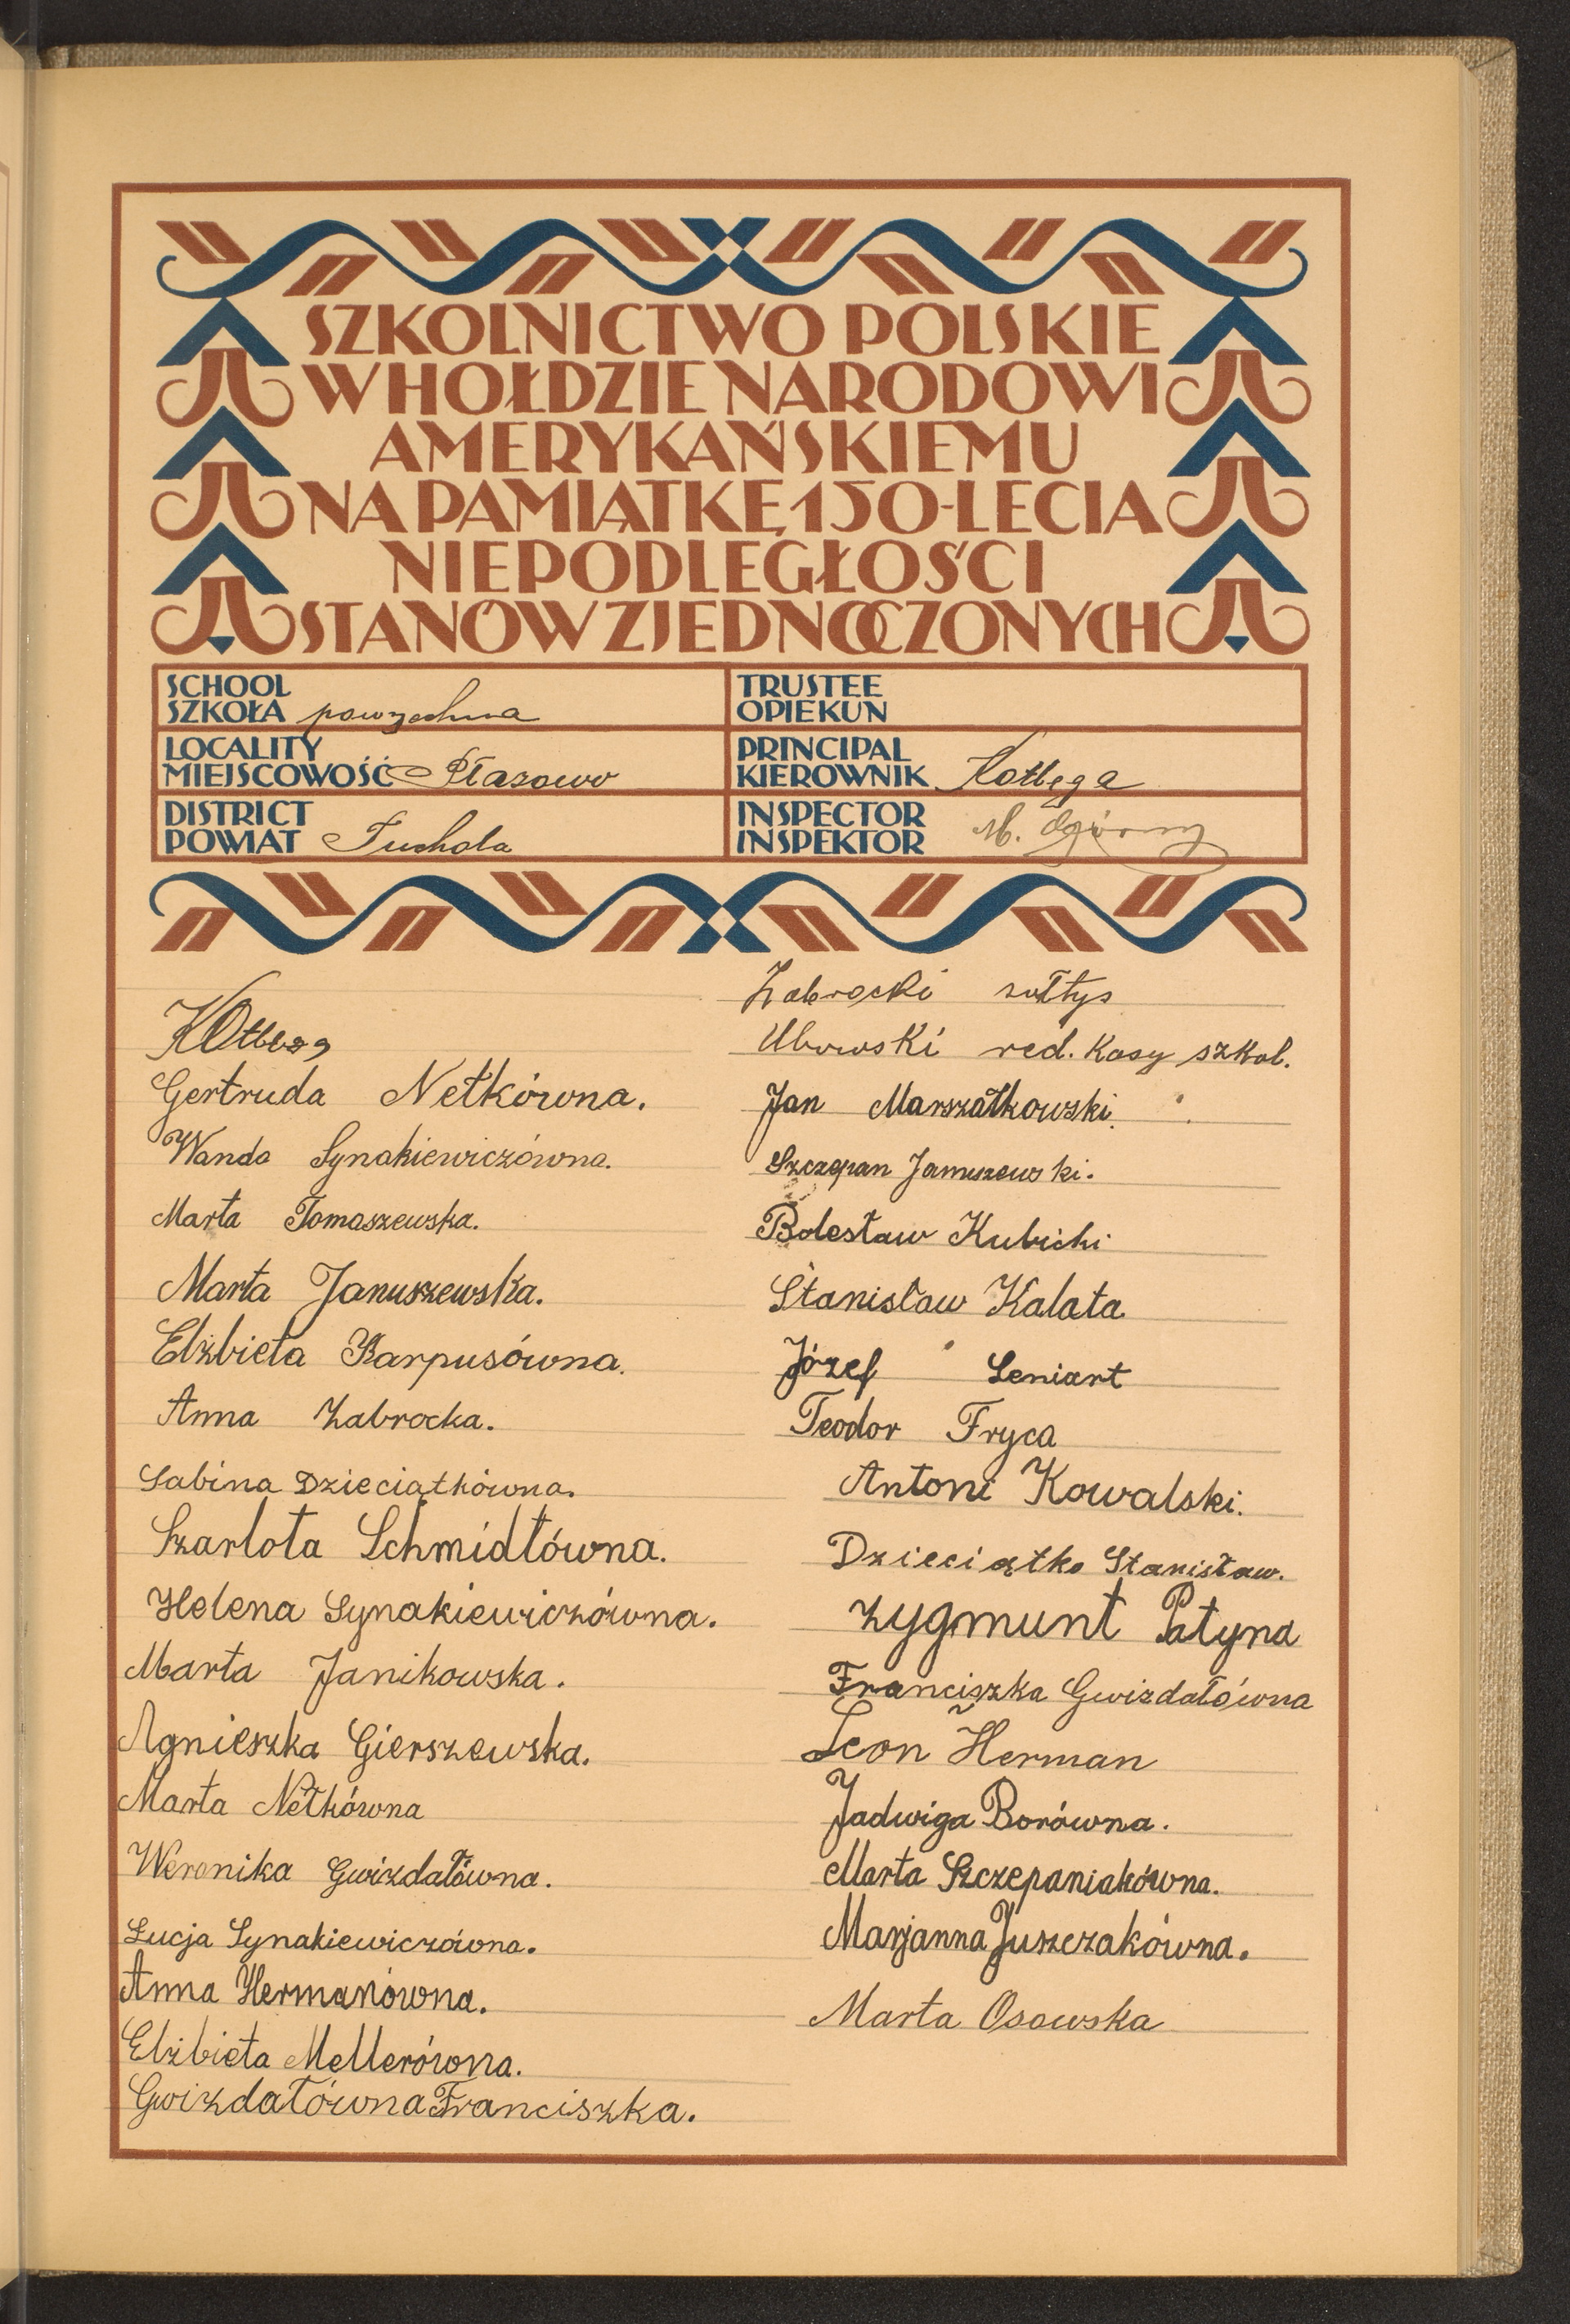 SZKOLNICTWO POLSKIE
W HOŁDZIE NARODOWI
AMERYKAŃSKIEMU
NA PAMIĄTKĘ 150-LECIA
NIEPODLEGŁOŚCI
STANÓW ZJEDNOCZONYCH
SCHOOL
SZKOŁA powszechna
LOCALITY
MIEJSCOWOŚĆ Płazowo
DISTRICT
POWIAT Tuchola
TRUSTEE
OPIEKUN
PRINCIPAL
KIEROWNIK Kotlęga
INSPECTOR
INSPEKTOR M. Ogórny
Gertruda Netkówna.
Wanda Synakiewiczówna.
Marta Tomaszewska.
Marta Januszewska.
Elżbieta Karpusówna.
Anna Zabrocka.
Sabina Dzieciątkówna.
Szarlota Schmidtówna.
Helena Synakiewiczówna.
Marta Janikowska.
Agnieszka Gierszewska.
Marta Netkówna
Weronika Gwizdałówna.
Łucja Synakiewiczówna.
Anna Hermanówna.
Elżbieta Mellerówna.
Gwizdałówna Franciszka.
Zabrocki sołtys
Ubowski red. Kasy szkol.
Jan Marszałkowski.
Szczepan Januszewski.
Bolesław Kubicki
Stanisław Kalata
Józef Leniart
Teodor Fryca
Antoni Kowalski.
Dzieciątko Stanisław.
Zygmunt Patyna
Franciszka Gwizdałówna
Leon Herman
Jadwiga Borówna.
Marta Szczepaniakówna.
Marjanna Juszczakówna.
Marta Osowska